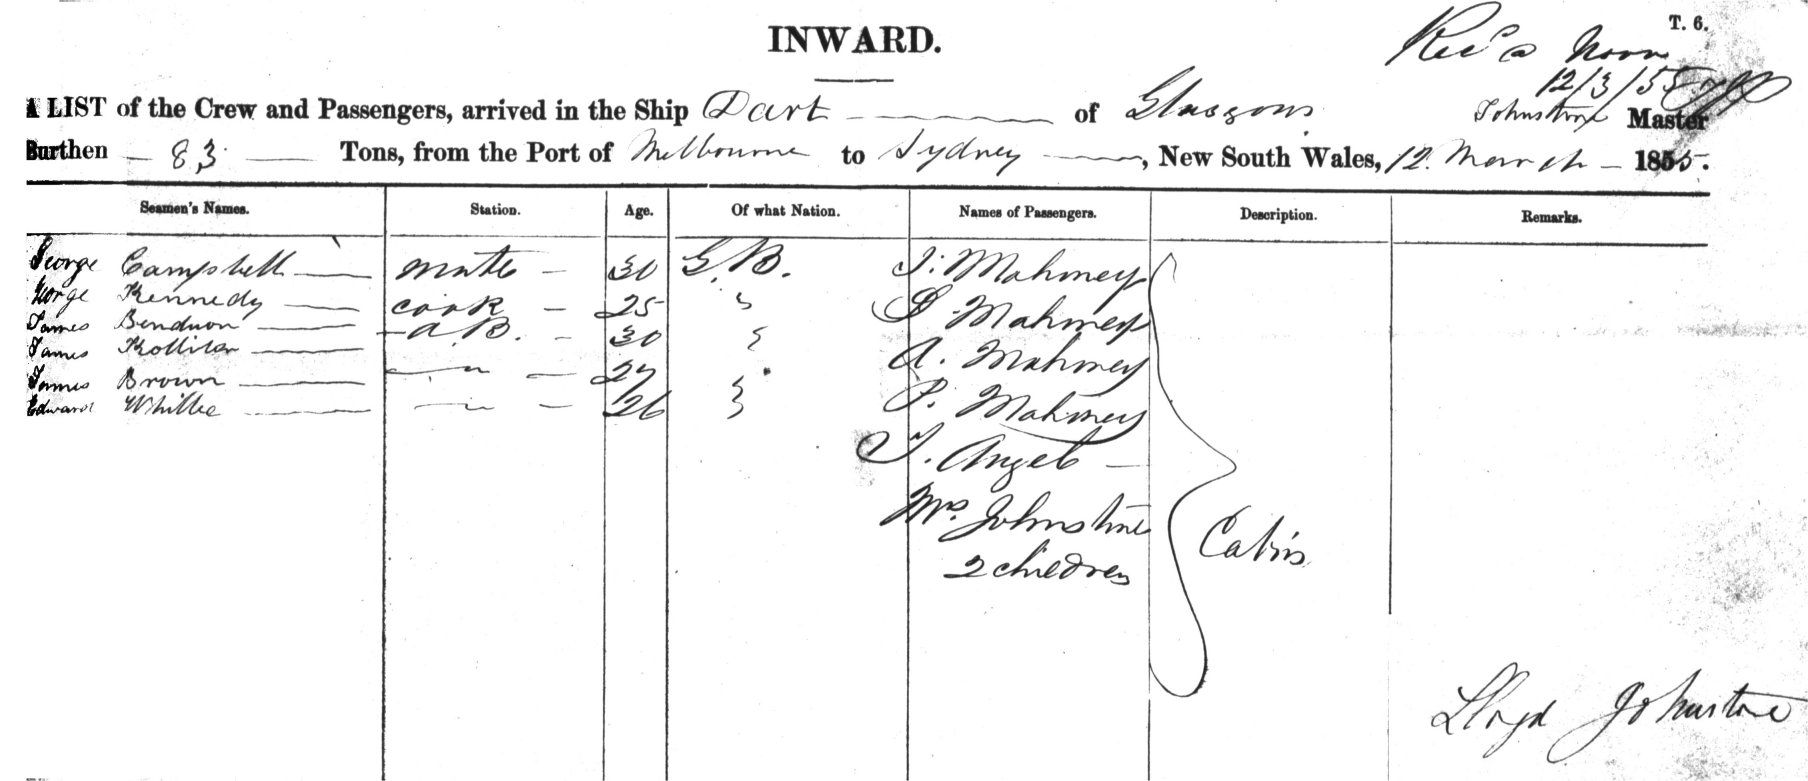 T. 6.
INWARD.
Rec'd @ Noon
12/3/55
A LIST of the Crew and Passengers, arrived in the Ship Dart of Glasgow Johnstone Master
Burthen 83 Tons, from the Port of Melbourne to Sydney, New South Wales, 12 March 1855.
Seamen's Names. Station. Age. Of what Nation. Names of Passengers. Description. Remarks.
George Campbell mate 30 G.B. J. Mahoney
George Kennedy cook 25 " Mahoney
James A.B. 30 " A. Mahoney
James
James Brown " 27 " P. Mahoney
Edward " 26 "
T. Angel
Mrs. Johnstone
2 children
Cabin
Lloyd Johnstone